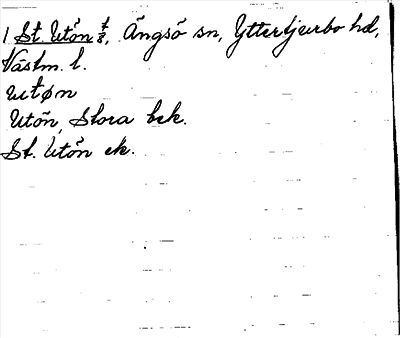 1 St. Utön, Ängsö sn, Yttertjurbo hd,
Västm. l.
utøn
Utön, Stora bek.
St. Utön ek.